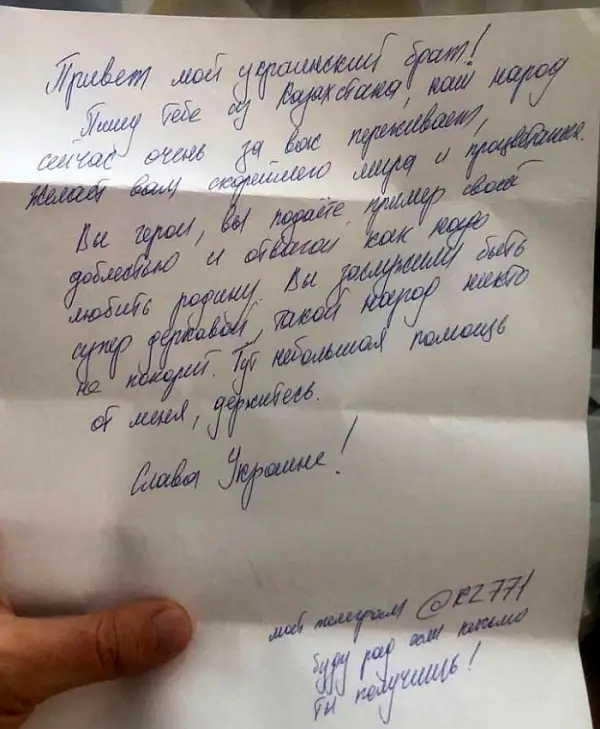 Привет мой украинский брат!
Пишу тебе из Казахстана, наш народ
сейчас очень за вас переживает,
желает вам скорейшего мира и процветания.
Вы герои, вы подаёте пример своей
доблестью и отвагой как надо
любить родину. Вы заслужили быть
супер державой, такой народ никто
не покорит. Тут небольшая помощь
от меня, держитесь.
Слава Украине!
мой телеграм @KZ771
буду рад если письмо
ты получишь!